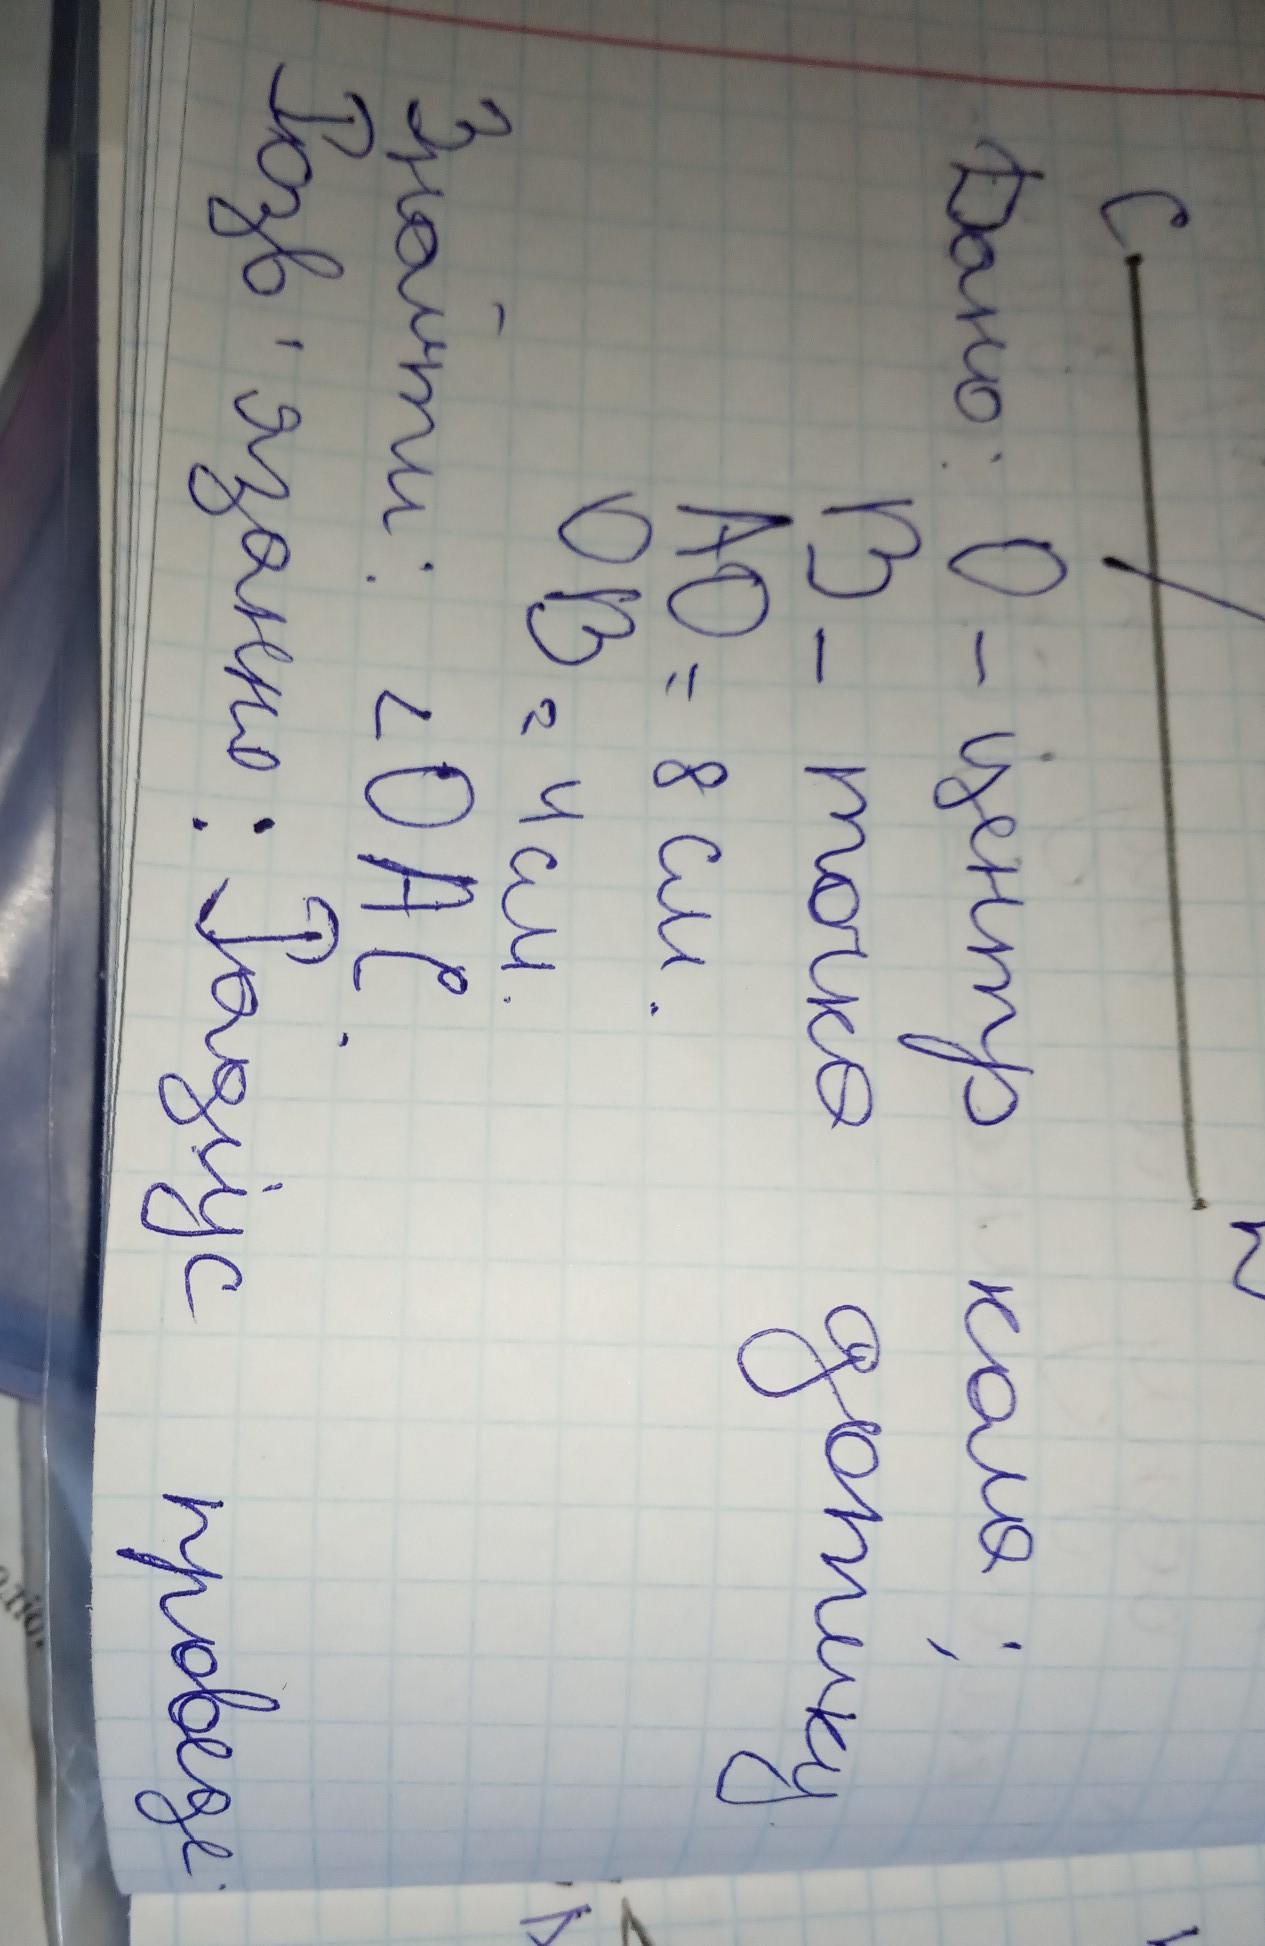 C
Дано: O - центр кола;
B - точка дотику
AO = 8 см.
OB = 4 см.
Знайти: ∠OAC.
Розв'язання: Радіус проведе